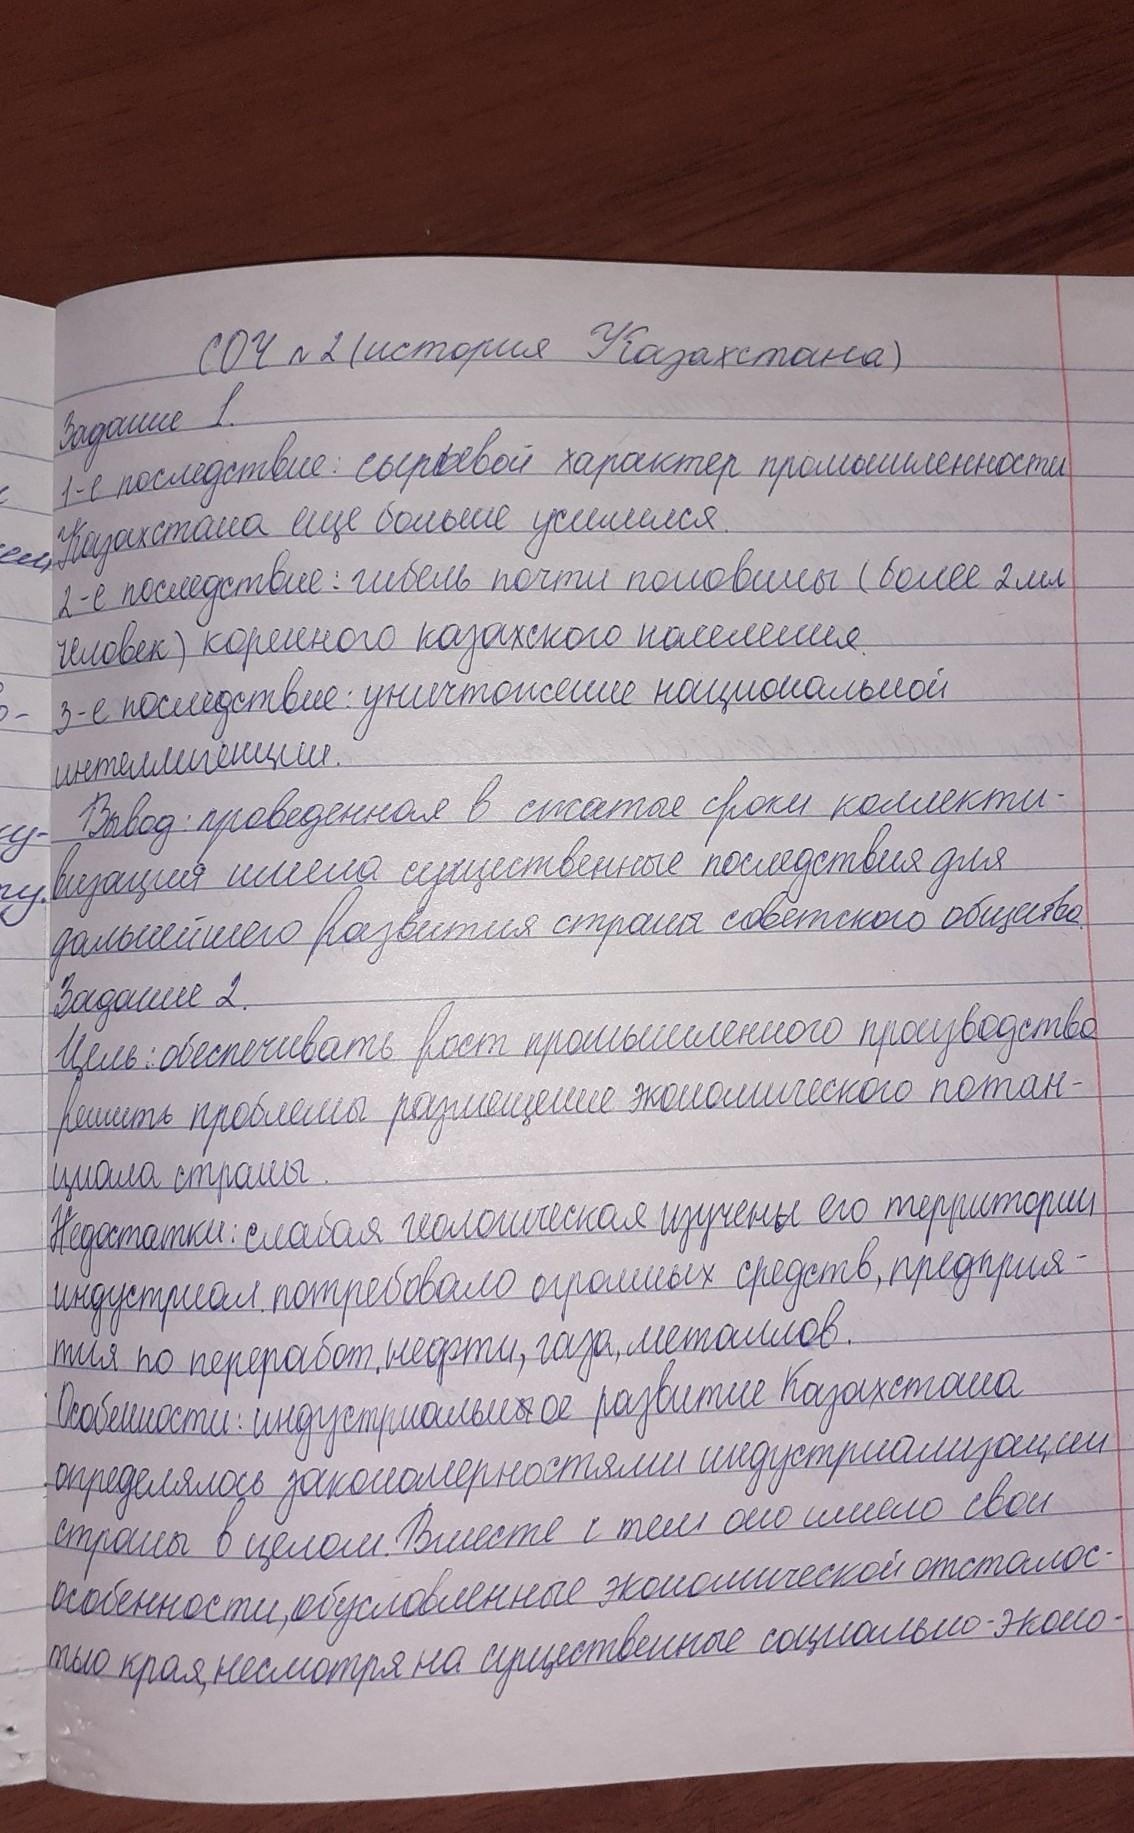 СОЧ №2 (история Казахстана)
Задание 1.
1-е последствие: сырьевой характер промышленности
Казахстана еще больше усилился.
2-е последствие: гибель почти половины (более 2 мл
человек) коренного казахского населения.
3-е последствие: уничтожение национальной
интеллигенции.
Вывод: проведенная в сжатые сроки коллекти-
визация имела существенные последствия для
дальнейшего развития страны советского общества.
Задание 2.
Цель: обеспечивать рост промышленного производства
решить проблемы размещение экономического потан-
циала страны.
Недостатки: слабая геологическая изучены его территории
индустриал. потребовало огромных средств, предприя-
тия по переработ. нефти, газа, металлов.
Особенности: индустриальное развитие Казахстана
определялось закономерностями индустриализации
страны в целом. Вместе с тем оно имело свои
особенности, обусловленные экономической отсталос-
тью края, несмотря на существенные социально-эконо-